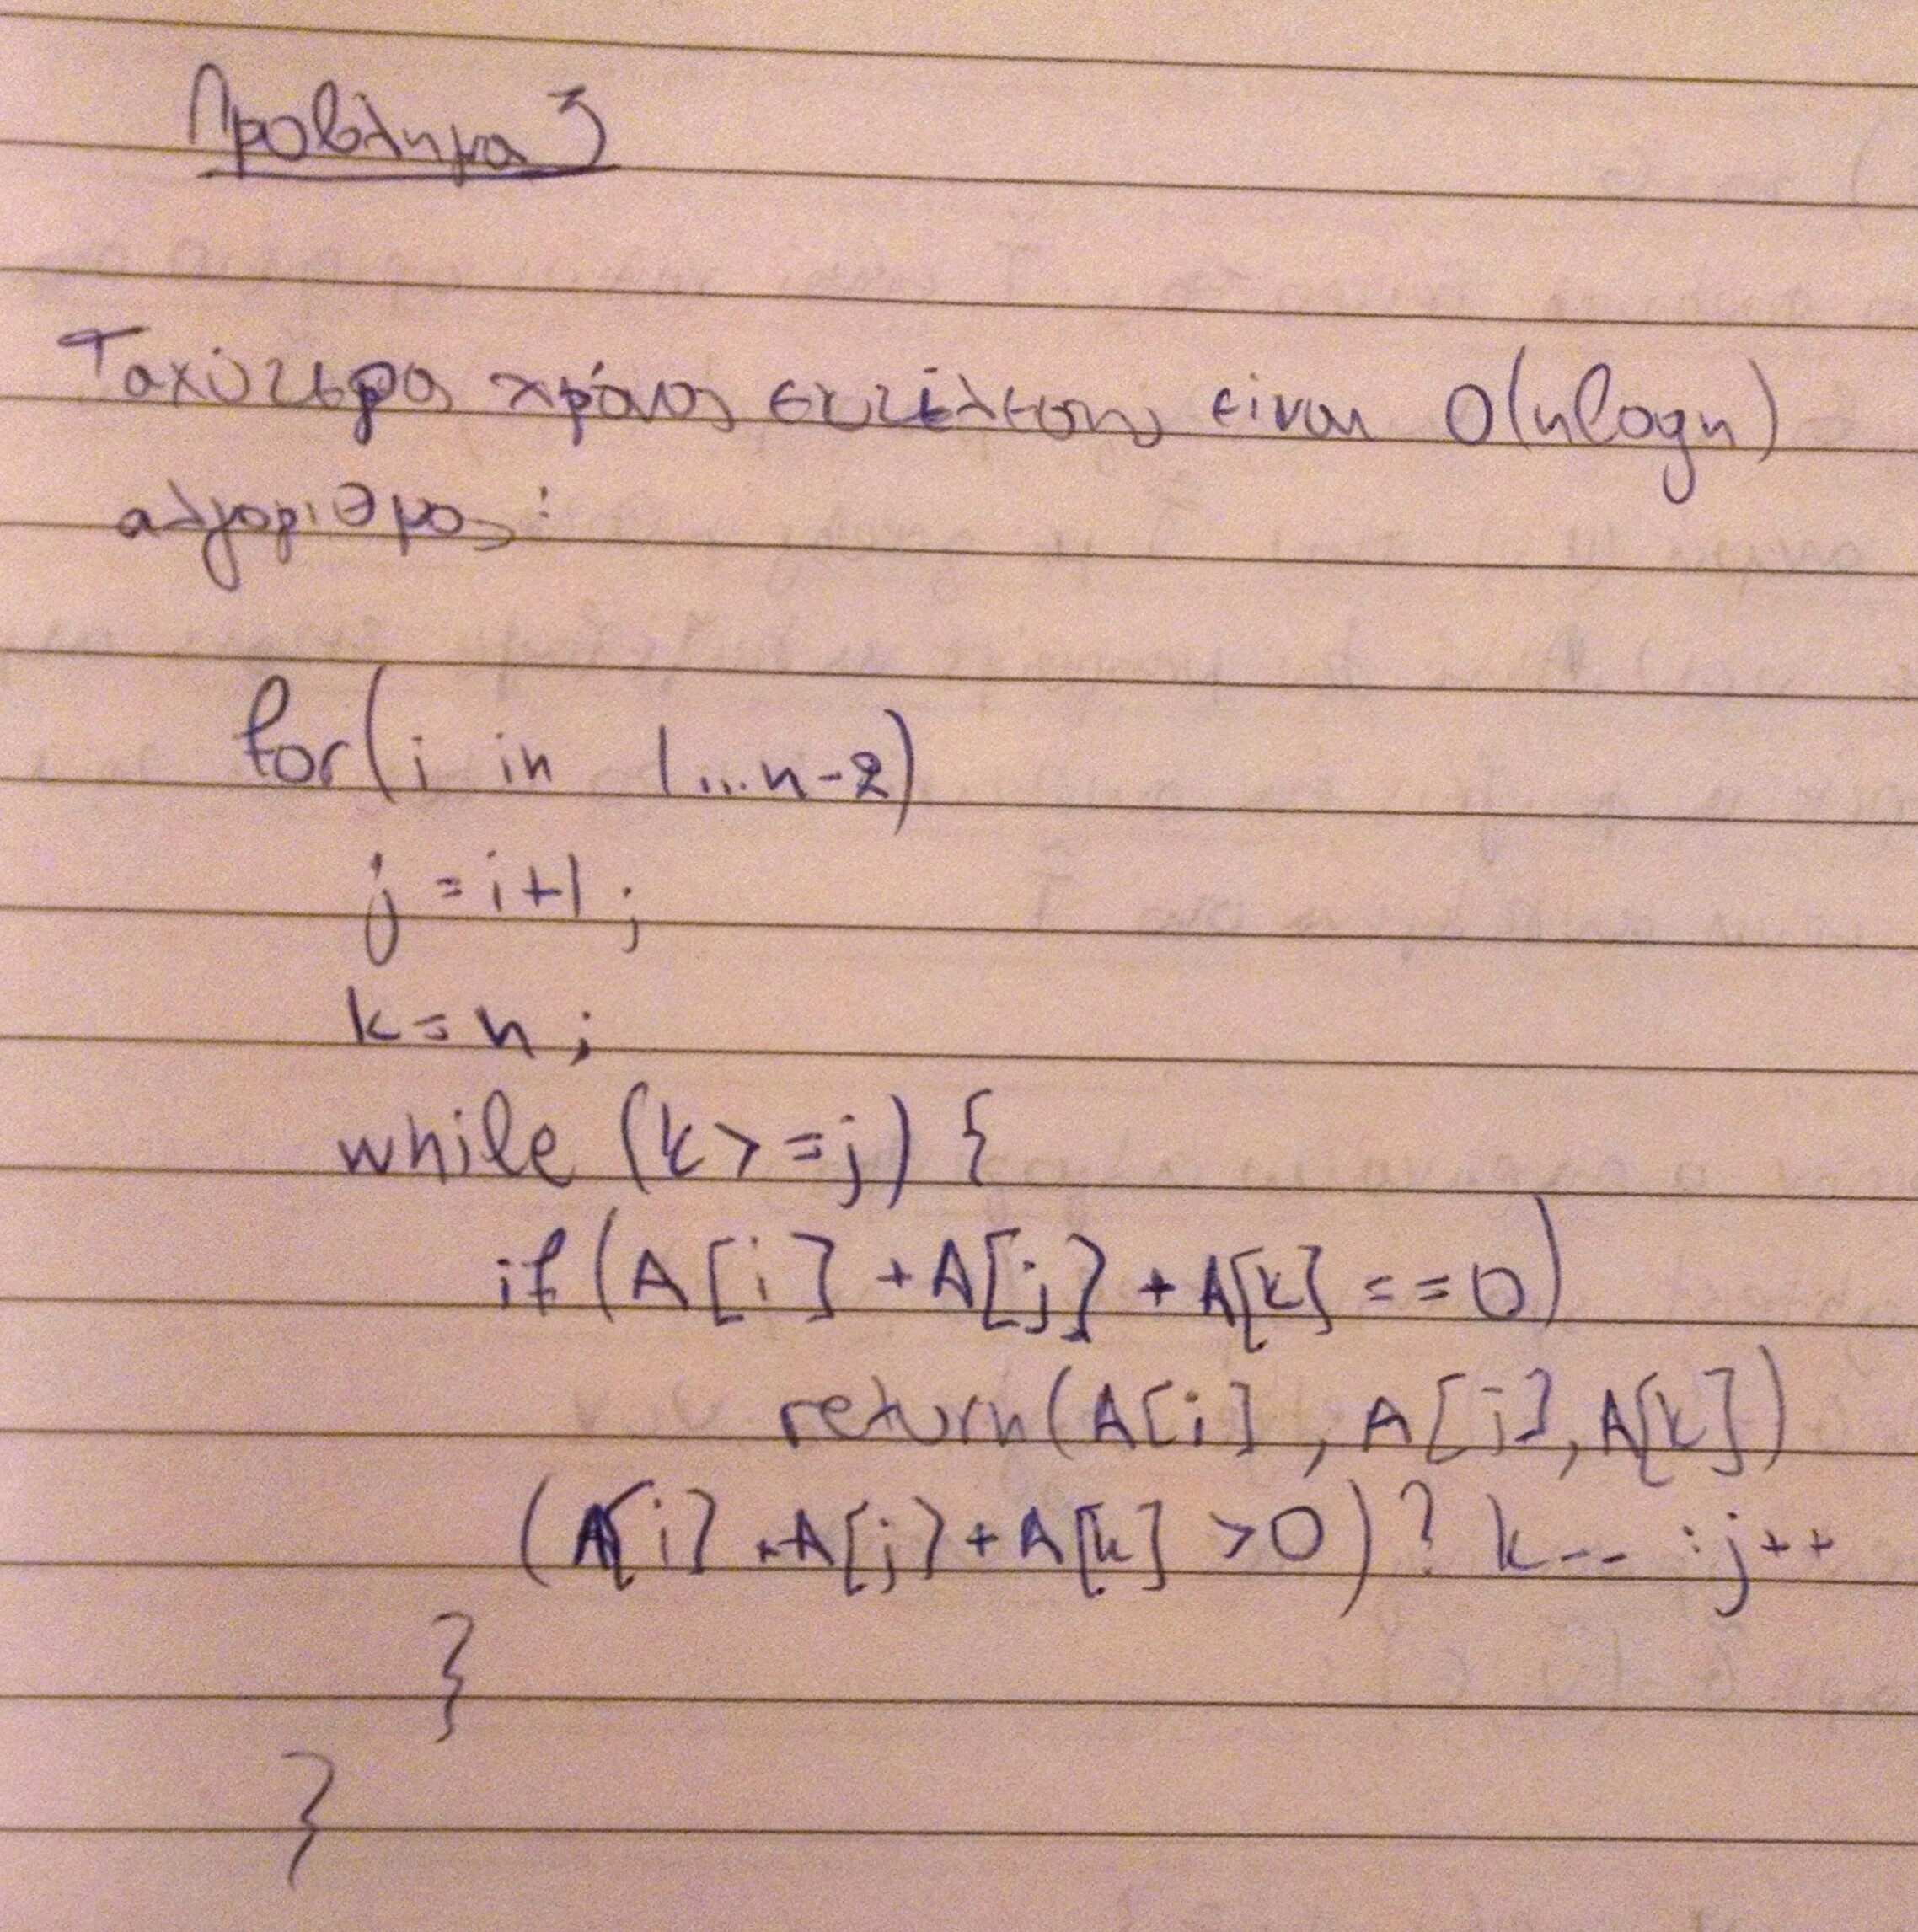 Πρόβλημα 3
Ταχύτερος χρόνος εκτέλεσης είναι O(nlogn)
αλγοριθμος:
for(i in 1...n-2)
j = i+1;
k = n;
while (k>=j) {
if(A[i] + A[j] + A[k] == 0)
return(A[i], A[j], A[k])
(A[i] + A[j] + A[k] > 0) ? k-- : j++
}
}